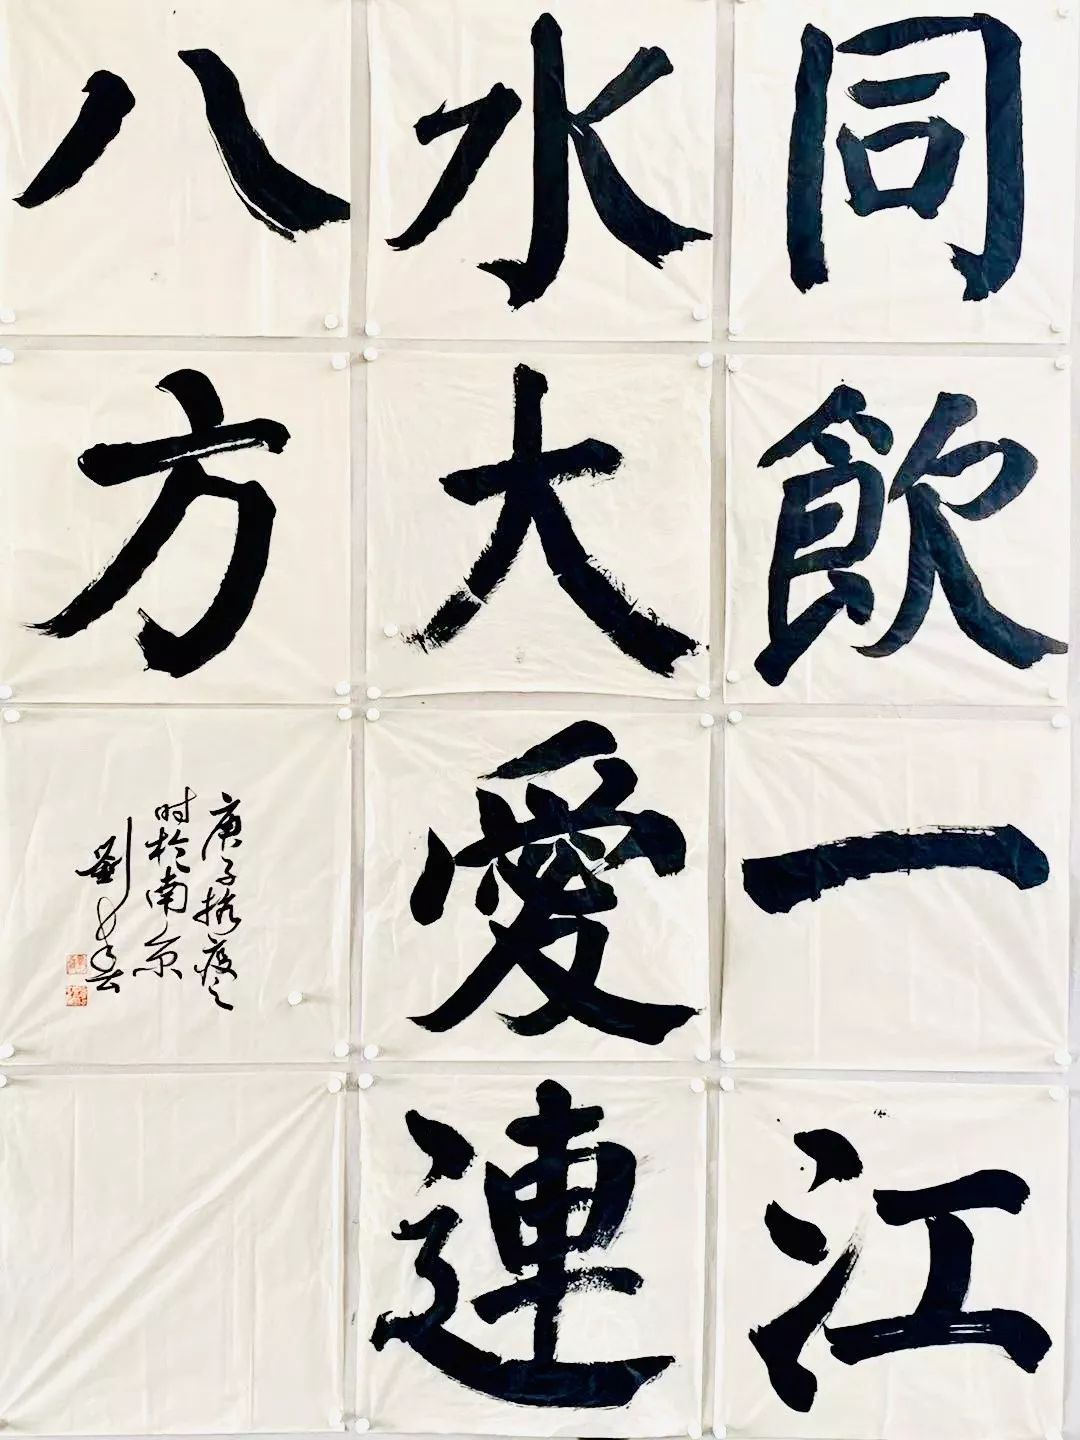 同飲一江
水大愛連
八方
庚子抗疫之
时於南京
劉